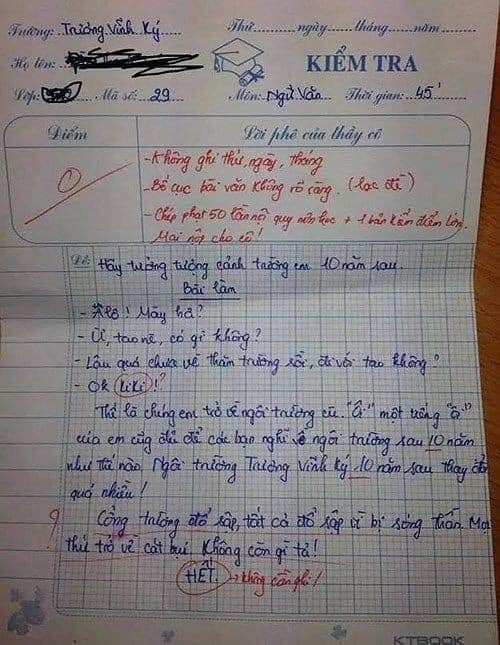 Trường: Trương Vĩnh Ký Thứ ngày tháng năm
Họ tên:
KIỂM TRA
Lớp: Mã số: 29 Môn: Ngữ Văn Thời gian: 45'
Điểm Lời phê của thầy cô
0
- Không ghi thứ, ngày, tháng
- Bố cục bài văn không rõ ràng. (lạc đề)
- Chép phạt 50 lần nội quy môn học + 1 bản kiểm điểm lớn.
Mai nộp cho cô!
Đề: Hãy tưởng tượng cảnh trường em 10 năm sau.
Bài làm
- Alô! Mày hả?
- Ừ, tao nè, có gì không?
- Lâu quá chưa về thăm trường rồi, đi với tao không?
- Ok kiki!?
Thế là chúng em trở về ngôi trường cũ. "Ôi" một tiếng "ôi"
của em cũng đủ để các bạn nghĩ về ngôi trường sau 10 năm
như thế nào. Ngôi trường Trương Vĩnh Ký 10 năm sau thay đổi
quá nhiều!
? Cổng trường đổ sập, tất cả đổ sập vì bị sóng thần. Mọi
thứ trở về cát bụi. Không còn gì tả!
HẾT. → không cần ghi!
KTBOOK